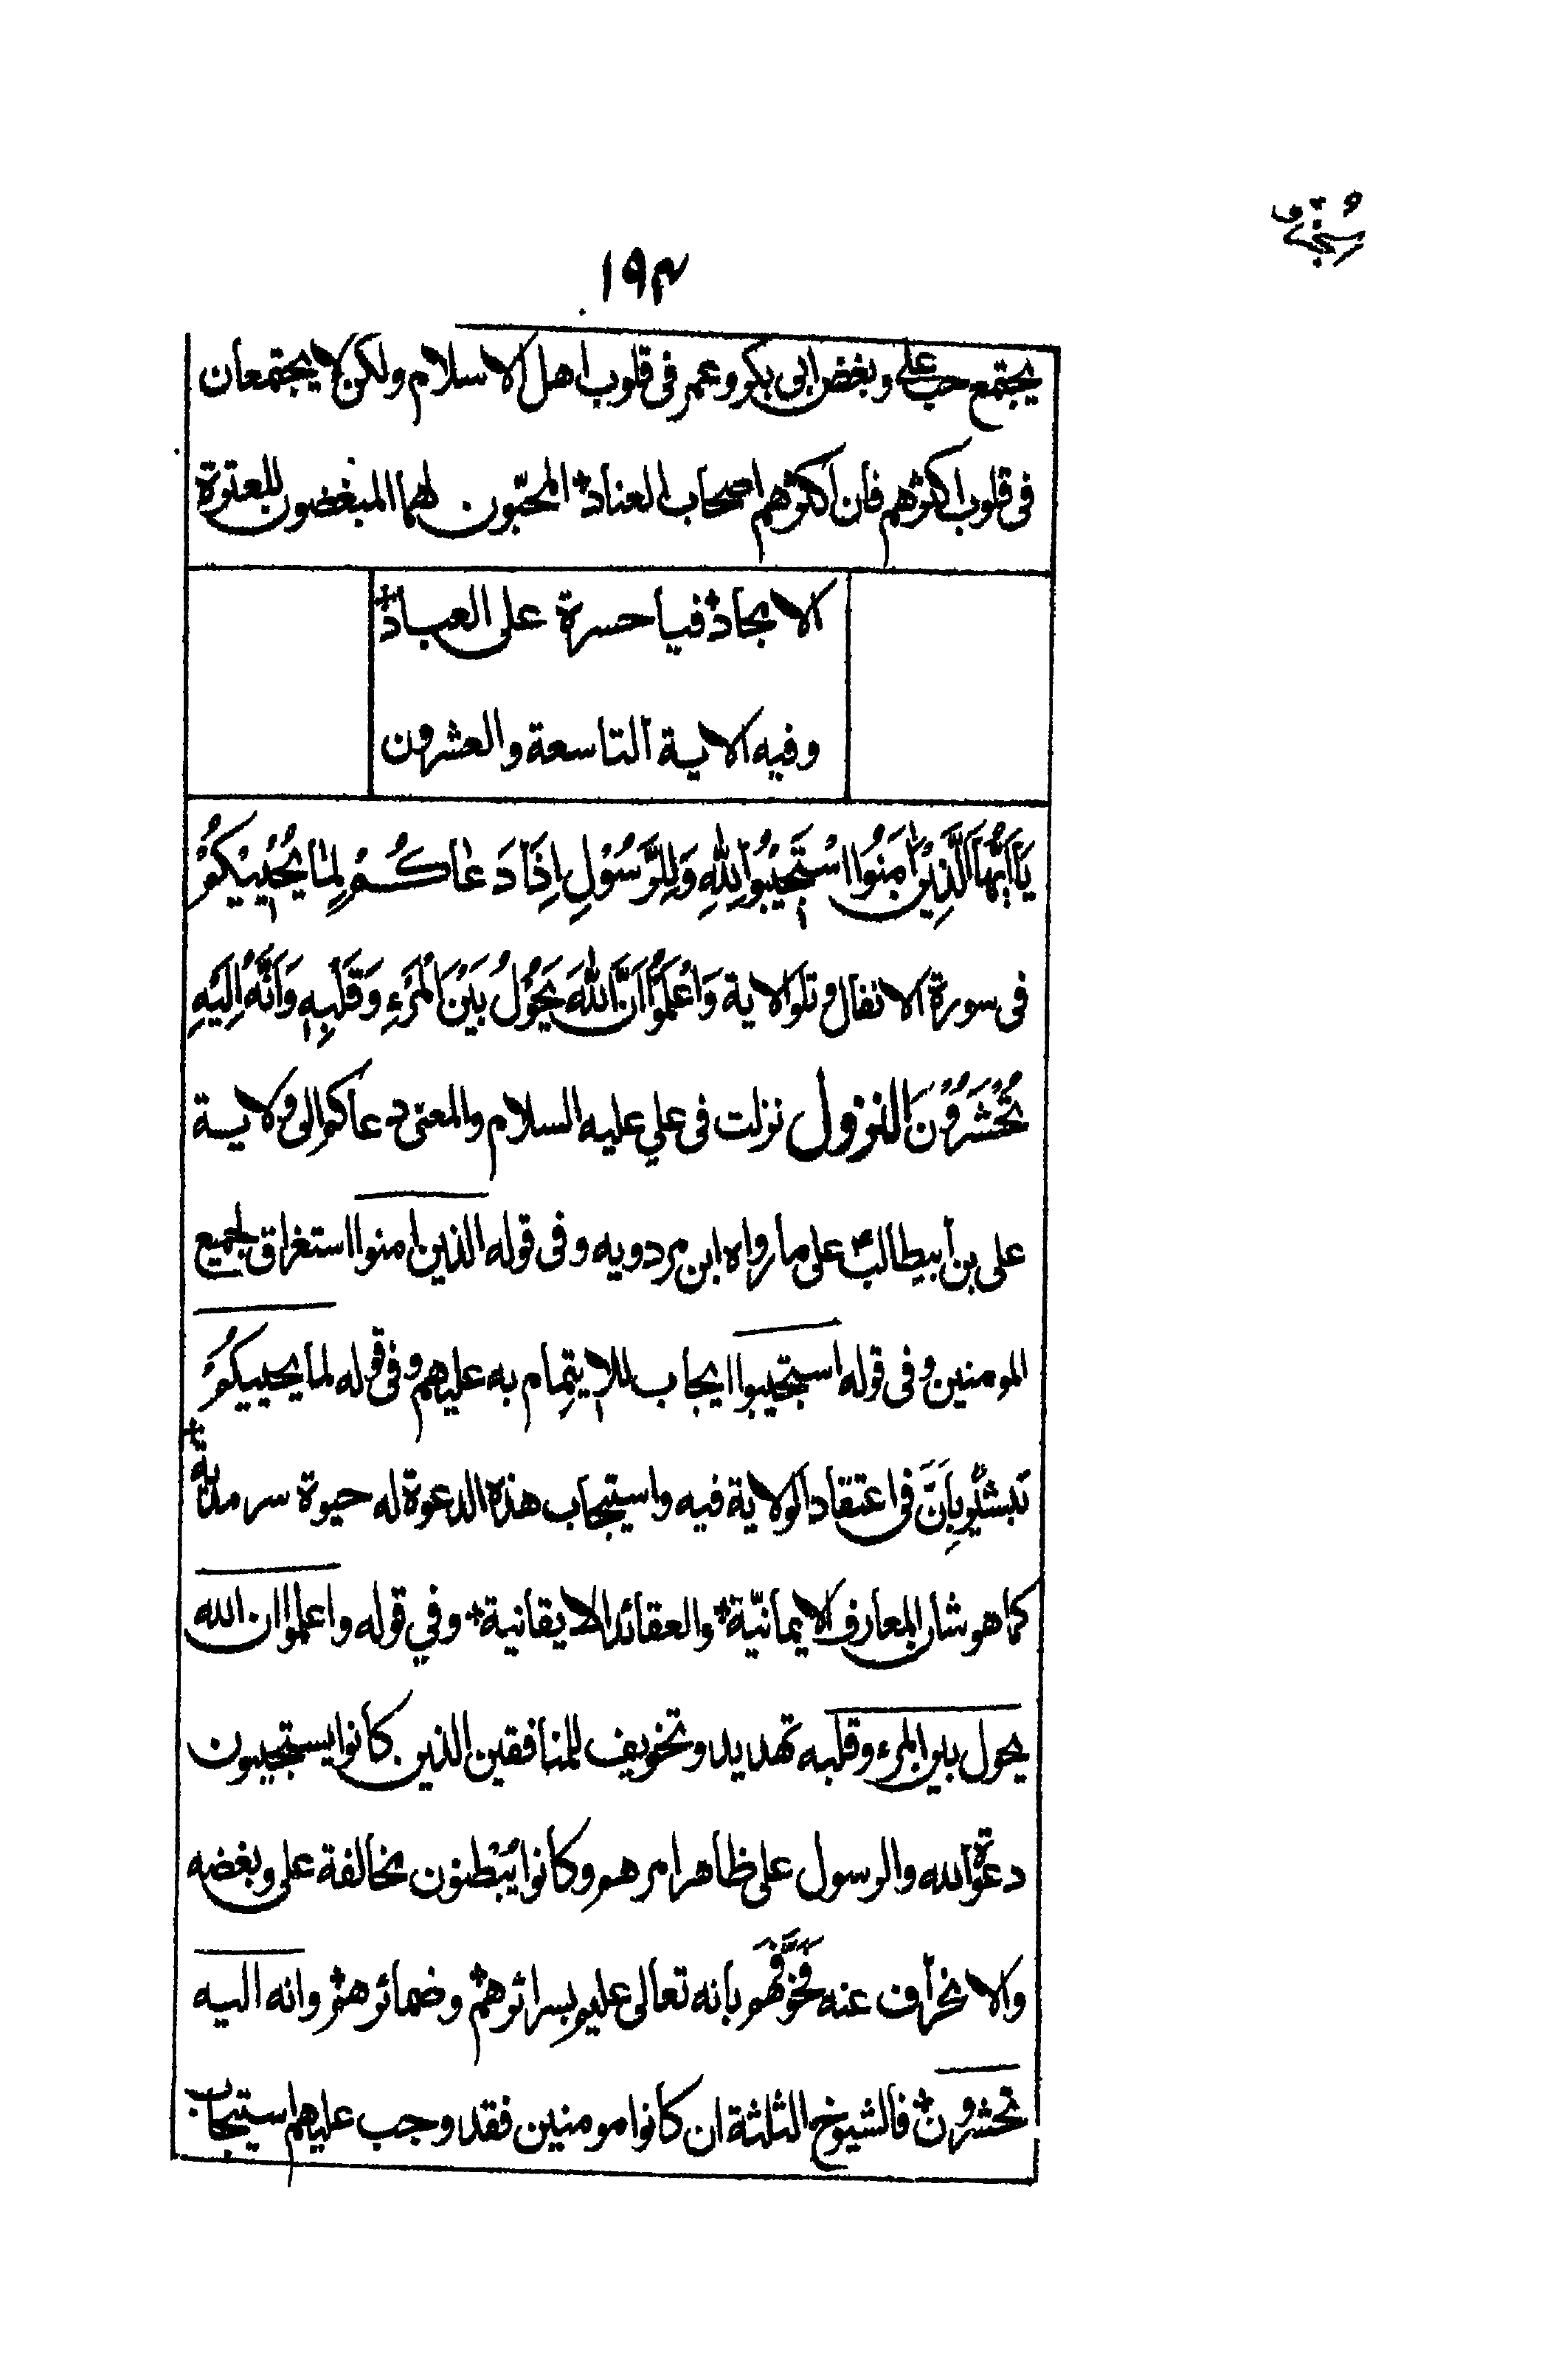 ١٩٤
يجتمع حب علي وبغض ابى بكر وعمر فى قلوب اهل الاسلام ولكن لا يجتمعان
فى قلوب اكثرهم فان اكثرهم اصحاب العناد المحبّون لهما المبغضون للعترة
الامجاد فيا حسرة على العباد
وفيه الاية التاسعة والعشرون
يَا اَيُّهَا الَّذِيْنَ اٰمَنُوا اسْتَجِيْبُوا لِلّٰهِ وَلِلرَّسُوْلِ اِذَا دَعَاكُمْ لِمَا يُحْيِيْكُمْ
فى سورة الانفال وتلو الاية وَاعْلَمُوْا اَنَّ اللهَ يَحُوْلُ بَيْنَ الْمَرْءِ وَقَلْبِهٖ وَاَنَّهُ اِلَيْهِ
تُحْشَرُوْنَ النزول نزلت فى علي عليه السلام والمعنى دعاكم الى ولاية
على بن ابيطالب على ما رواه ابن مردويه وفى قوله الذين امنوا استغراق لجميع
المومنين وفى قوله استجيبوا ايجاب للايتمام به عليهم وفى قوله لما يحييكم
تبشير بِاَنَّ فى اعتقاد الولاية فيه واستيجاب هذه الدعوة له حيوة سرمدية
كما هو شان المعارف الايمانيّة والعقائد الايقانية وفي قوله واعلموا ان الله
يحول بين المرء وقلبه تهديد وتخويف للمنافقين الذين كانوا يستجيبون
دعوة الله والرسول على ظاهر امرهم وكانوا يُبْطنون مخالفة على وبغضه
والانحراف عنه فَخَوَّفَهم بانه تعالى عليم بسرائرهم وضمائرهم وانه اليه
تحشرون فالشيوخ الثلثة ان كانوا مومنين فقد وجب عليهم استيجاب